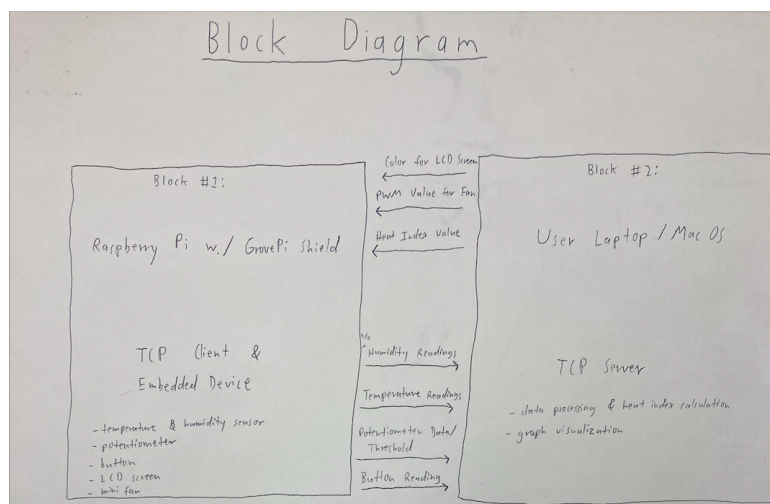 Block Diagram
Block #1:
Raspberry Pi w./ GrovePi Shield
TCP Client &
Embedded Device
- temperature & humidity sensor
- potentiometer
- button
- LCD screen
- mini fan
Color for LCD Screen
PWM Value for Fan
Heat Index Value
% Humidity Readings
Temperature Readings
Potentiometer Data/
Threshold
Button Reading
Block #2:
User Laptop / Mac OS
TCP Server
- data processing & heat index calculation
- graph visualization